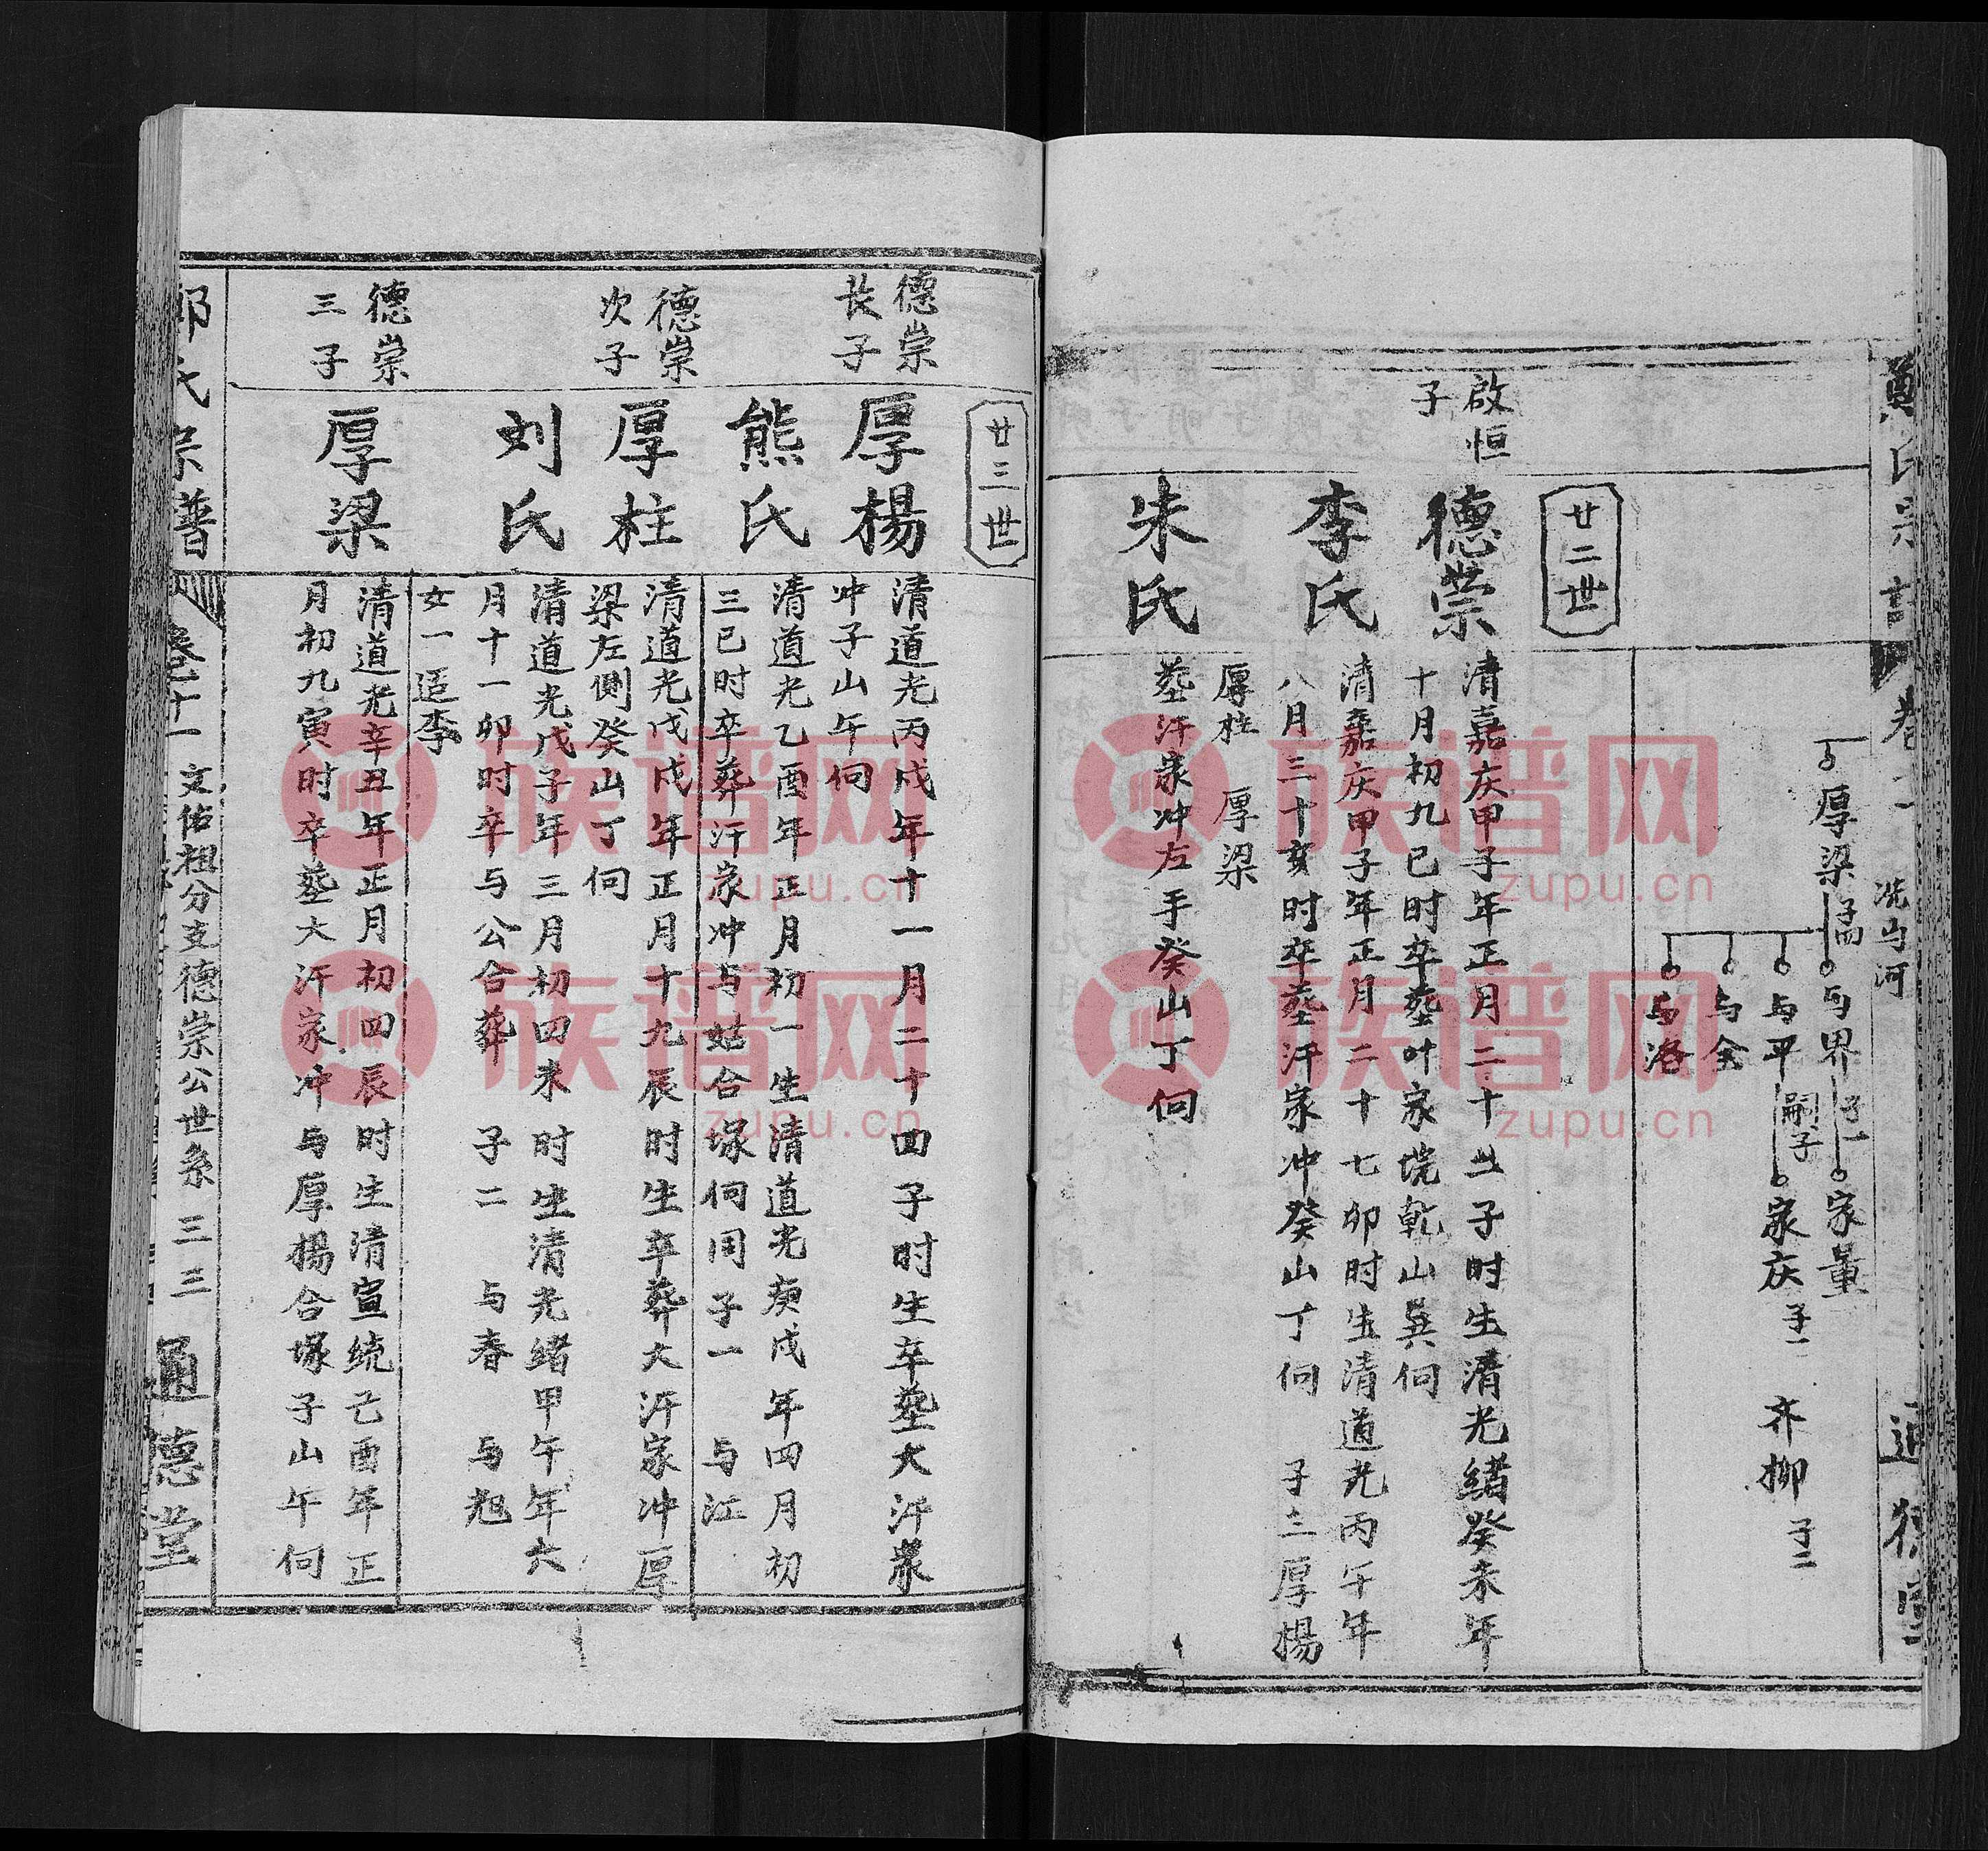 氏宗
卷
洗马河
通德堂
厚梁
子四
与界
子一
家量
与平
嗣子
家庆
子一
齐柳
子二
与全
与洛
廿二世
啟恒
子
德崇
清嘉庆甲子年正月二十三子时生清光绪癸未年
十月初九巳时卒塟叶家垸乾山巽向
李氏
清嘉庆甲子年正月二十七卯时生清道光丙午年
八月三十亥时卒塟汗家冲癸山丁向 子三厚楊
厚柱 厚梁
朱氏
塟汗家冲左手癸山丁向
廿三世
德崇
长子
厚楊
清道光丙戌年十一月二十四子时生卒塟大汗家
冲子山午向
熊氏
清道光乙酉年正月初一生清道光庚戌年四月初
三巳时卒葬汗家冲与姑合塚向同 子一 与江
德崇
次子
厚柱
清道光戊戌年正月十九辰时生卒葬大汗家冲厚
梁左侧癸山丁向
刘氏
清道光戊子年三月初四未时生清光绪甲午年六
月十一卯时卒与公合葬 子二 与春 与旭
女一适李
德崇
三子
厚梁
清道光辛丑年正月初四辰时生清宣统己酉年正
月初九寅时卒塟大汗家冲与厚楊合塚子山午向
氏宗譜
卷二十一
文佑祖分支德崇公世系
三三
通德堂
族谱网
zupu.cn
族谱网
zupu.cn
族谱网
zupu.cn
族谱网
zupu.cn